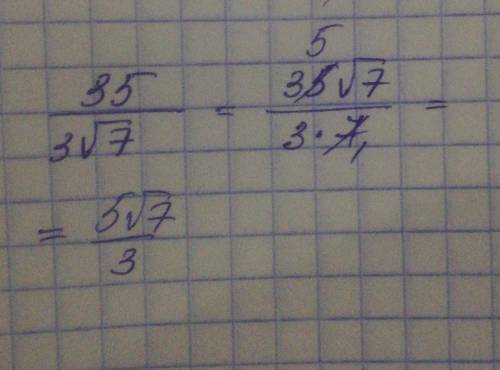 35/(3√7) = 35√7/(3·7) =
5 1
= 5√7/3